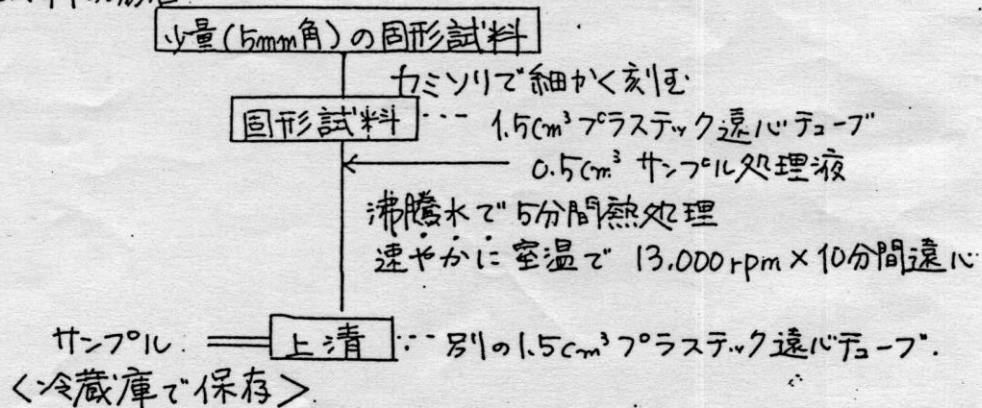 少量(5mm角)の固形試料
カミソリで細かく刻む
固形試料 … 1.5cm³プラスチック遠心チューブ
0.5cm³ サンプル処理液
沸騰水で5分間熱処理
速やかに室温で 13.000rpm×10分間遠心
サンプル 上清 … 別の1.5cm³プラスチック遠心チューブ.
<冷蔵庫で保存>